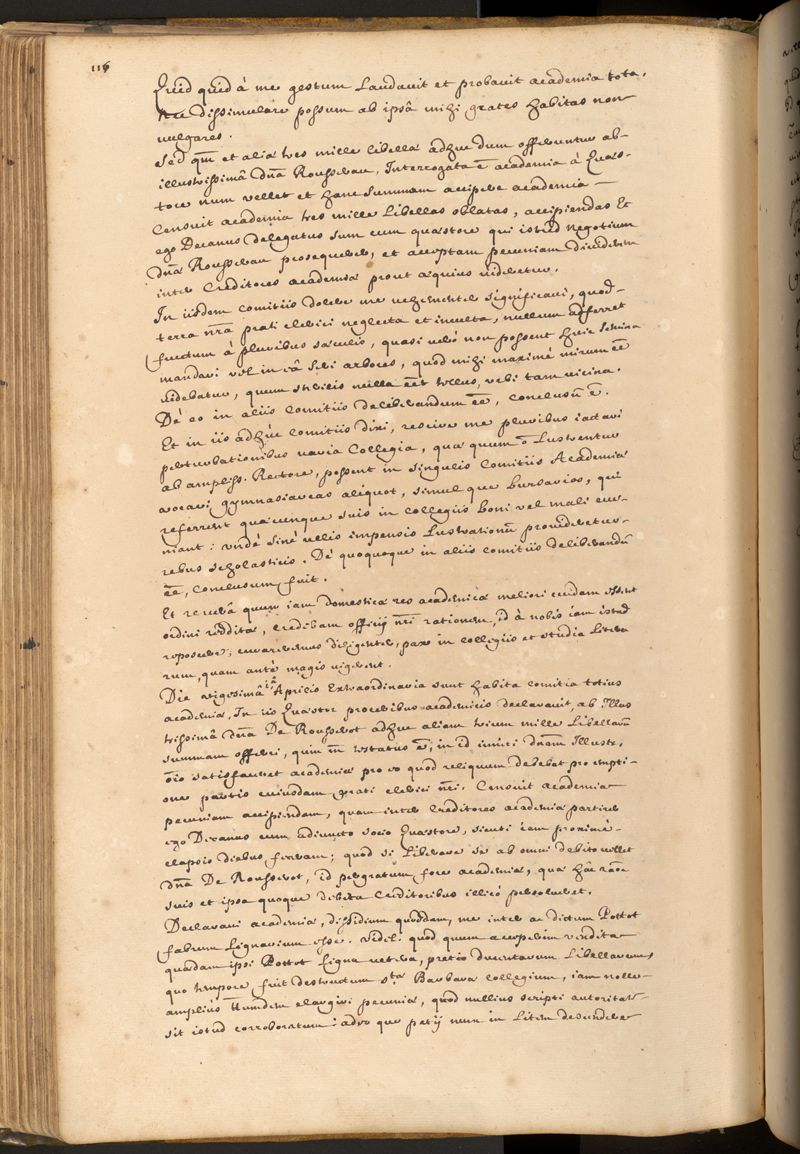 116
Quid quid à me gestum Laudavit et probavit academia tota,
Nec dissimulare possum ab ipsâ mihi grates habitas non
vulgares.
Sed qm̄ et alia tres mille libella adhuc dum offeruntur ab
illustrissimâ dnâ Rousseau, Interrogata ē academia à Quæs-
tore num vellet et hanc summam accipere academia —
Censuit academia tres mille Libellas oblatas, accipiendas Et
ego Decanus delegatus sum cum quæstore qui istud negotium
dnâ Rousseau prosequerer, et acceptam pecuniam dividerem
inter Creditores academiæ prout æquius videretur.
In iisdem comitiis dolere me vehementer significavi, quod
terra nrâ prati clerici neglecta et inculta, nullum adferret
fructum à pluribus sæculis, quasi verò non possent huic semina
mandari vel in eâ seri arbores, quod mihi maximè mirum ēē
videbatur, quum sterilis nulla ēēt tellus, urbi tam vicina.
Dé eo in aliis Comitiis deliberandum ēē, conclusū ē.
Et in iis adhuc Comitiis dixi, rescire me pluribus iactari
perturbationibus varia Collegia, quæ quum ō Lustrentur
ab ampliss. Rectore, possent in singulis Comitiis Academiæ
avocari gymnasiarcas aliquot, simul que bursarios, qui
referrent quæcunque suis in collegiis boni vel mali eve-
niant: undè sinè ullis impensis Lustrationū provideretur
rebus scholasticis. Dé quoquoque in aliis comitiis deliberandū
ēē, conclusum fuit.
Et re verâ quum iam domestica res academica meliori cuidam essent
ordini reddita, credebam officij nrī rationem, id à nobis iam istud
reposcere; curaremus diligenter, pax in collegiis et studia Litera
rum, quam antè magis vigerent.
Die vigesimâ 1â Aprilis Extraordinaria sunt habita comitia totius
academiæ, In iis Quæstor proceribus academicis declaravit, ab Illus
trissimâ dnâ De Roussevot adhuc aliam trium mille Libellarū
summam offerri, quin m̄ testatus ē, in id eniti dnam Illustr,
oīo satisfaceret academiæ pro eo quod reliquum debebat pro empti-
one partis cuiusdam prati clerici nrī. Censuit academia
pecuniam accipiendam, quam inter Creditores academiæ partirer
ego Decanus cum adiuncto socio Quæstore, sicuti iam proximè
elapsis diebus feceram; quod si Liberare se ab omni debito vellet
dnâ De Roussevot, id pergratum fore academiæ, quæ hâc raōe
suis et ipsa quoque debita creditoribus illicò persolveret.
Declaravi academiæ, dissidium quoddam, me inter ac dictum Pottot
fabrum Lignarium esse. videl. quod quum acceperim vendita
quædam ipsi Pottot Ligna vetera, pretio ducentarum Libellarum,
quo tempore fuit destructum stæ Barbaræ collegium, iam nolle
amplius Tantumdem elargiri pecuniæ, quod nullius scripti autoritate
sit istud corroboratum: adeo que petij num in Litem descendere